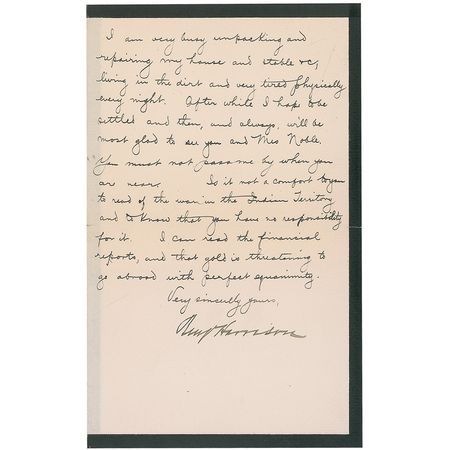 I am very busy unpacking and
repairing my house and stable &c,
living in the dirt and very tired physically
every night. After while I hope to be
settled and then, and always, will be
most glad to see you and Mrs Noble.
You must not pass me by when you
are near. Is it not a comfort to you
to read of the war in the Indian Territory
and to know that you have no responsibility
for it. I can read the financial
reports, and that gold is threatening to
go abroad with perfect equanimity.
Very sincerely yours,
Benj Harrison